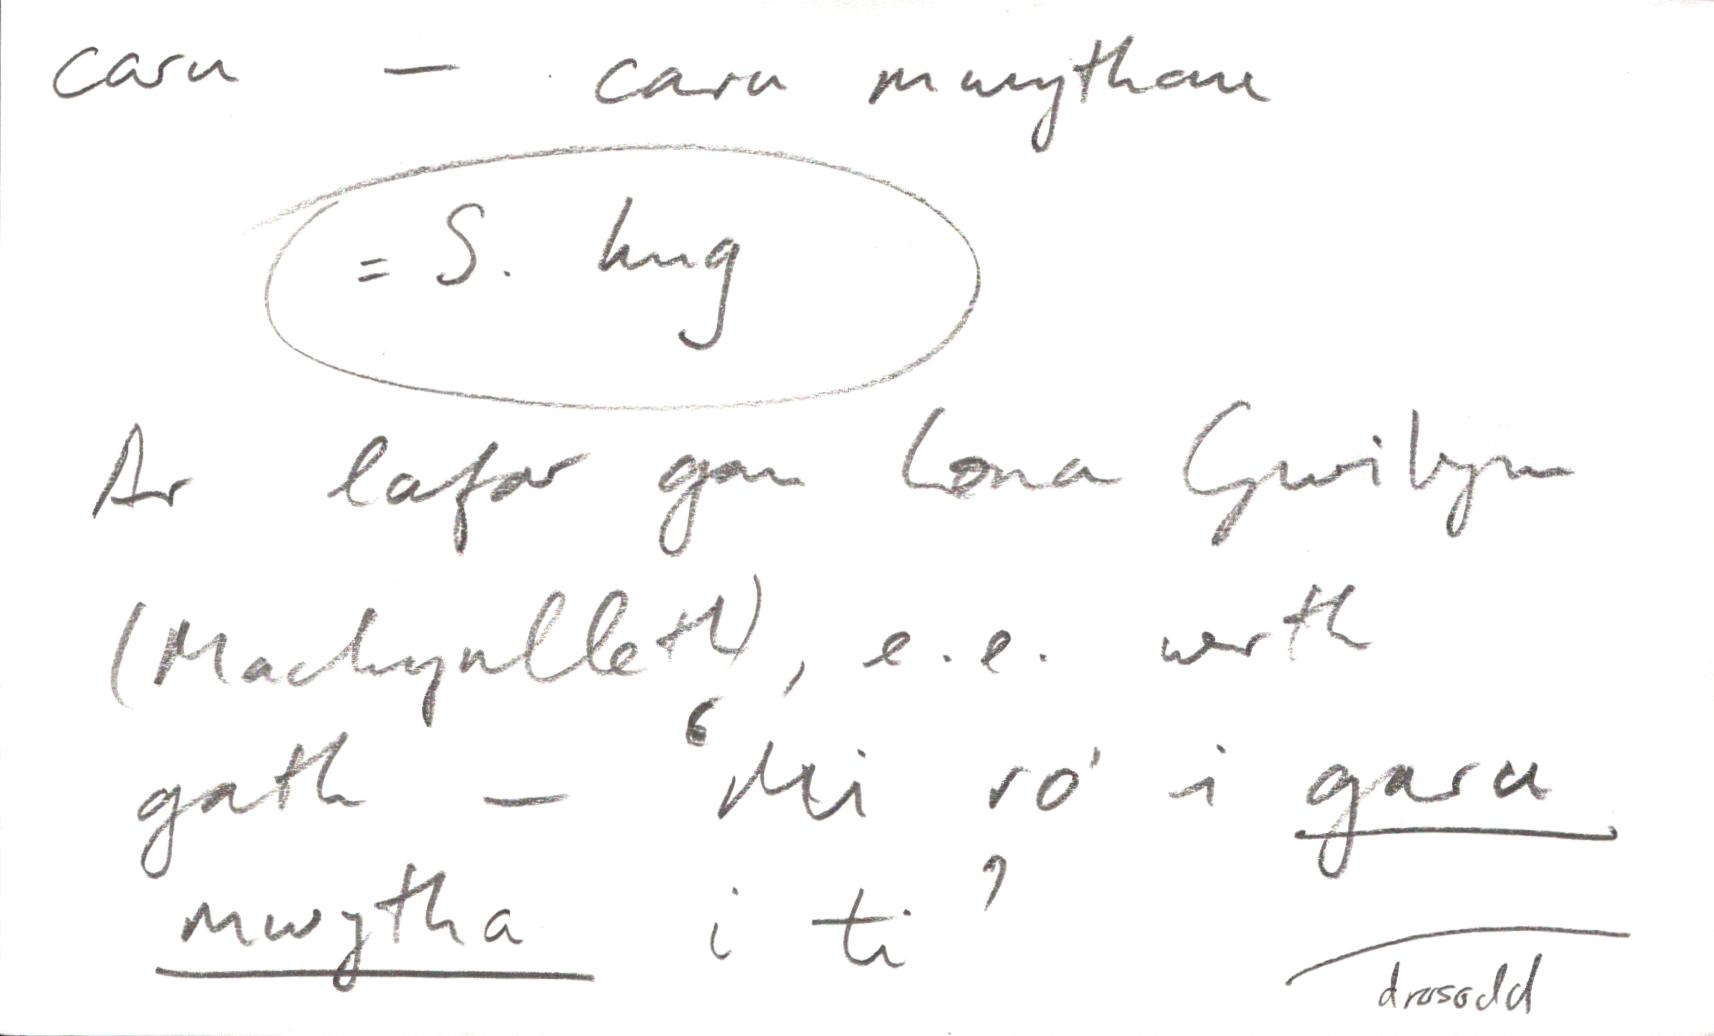 caru — caru mwythau
= S. hug
Ar lafar gan Lona Gwilym
(Machynlleth), e.e. wrth
gath — ‘Mi ro' i garu
mwytha i ti’
drosodd